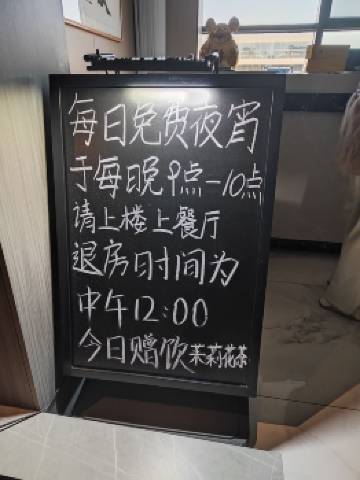 每日免费夜宵
于每晚9点-10点
请上楼上餐厅
退房时间为
中午12:00
今日赠饮茉莉花茶